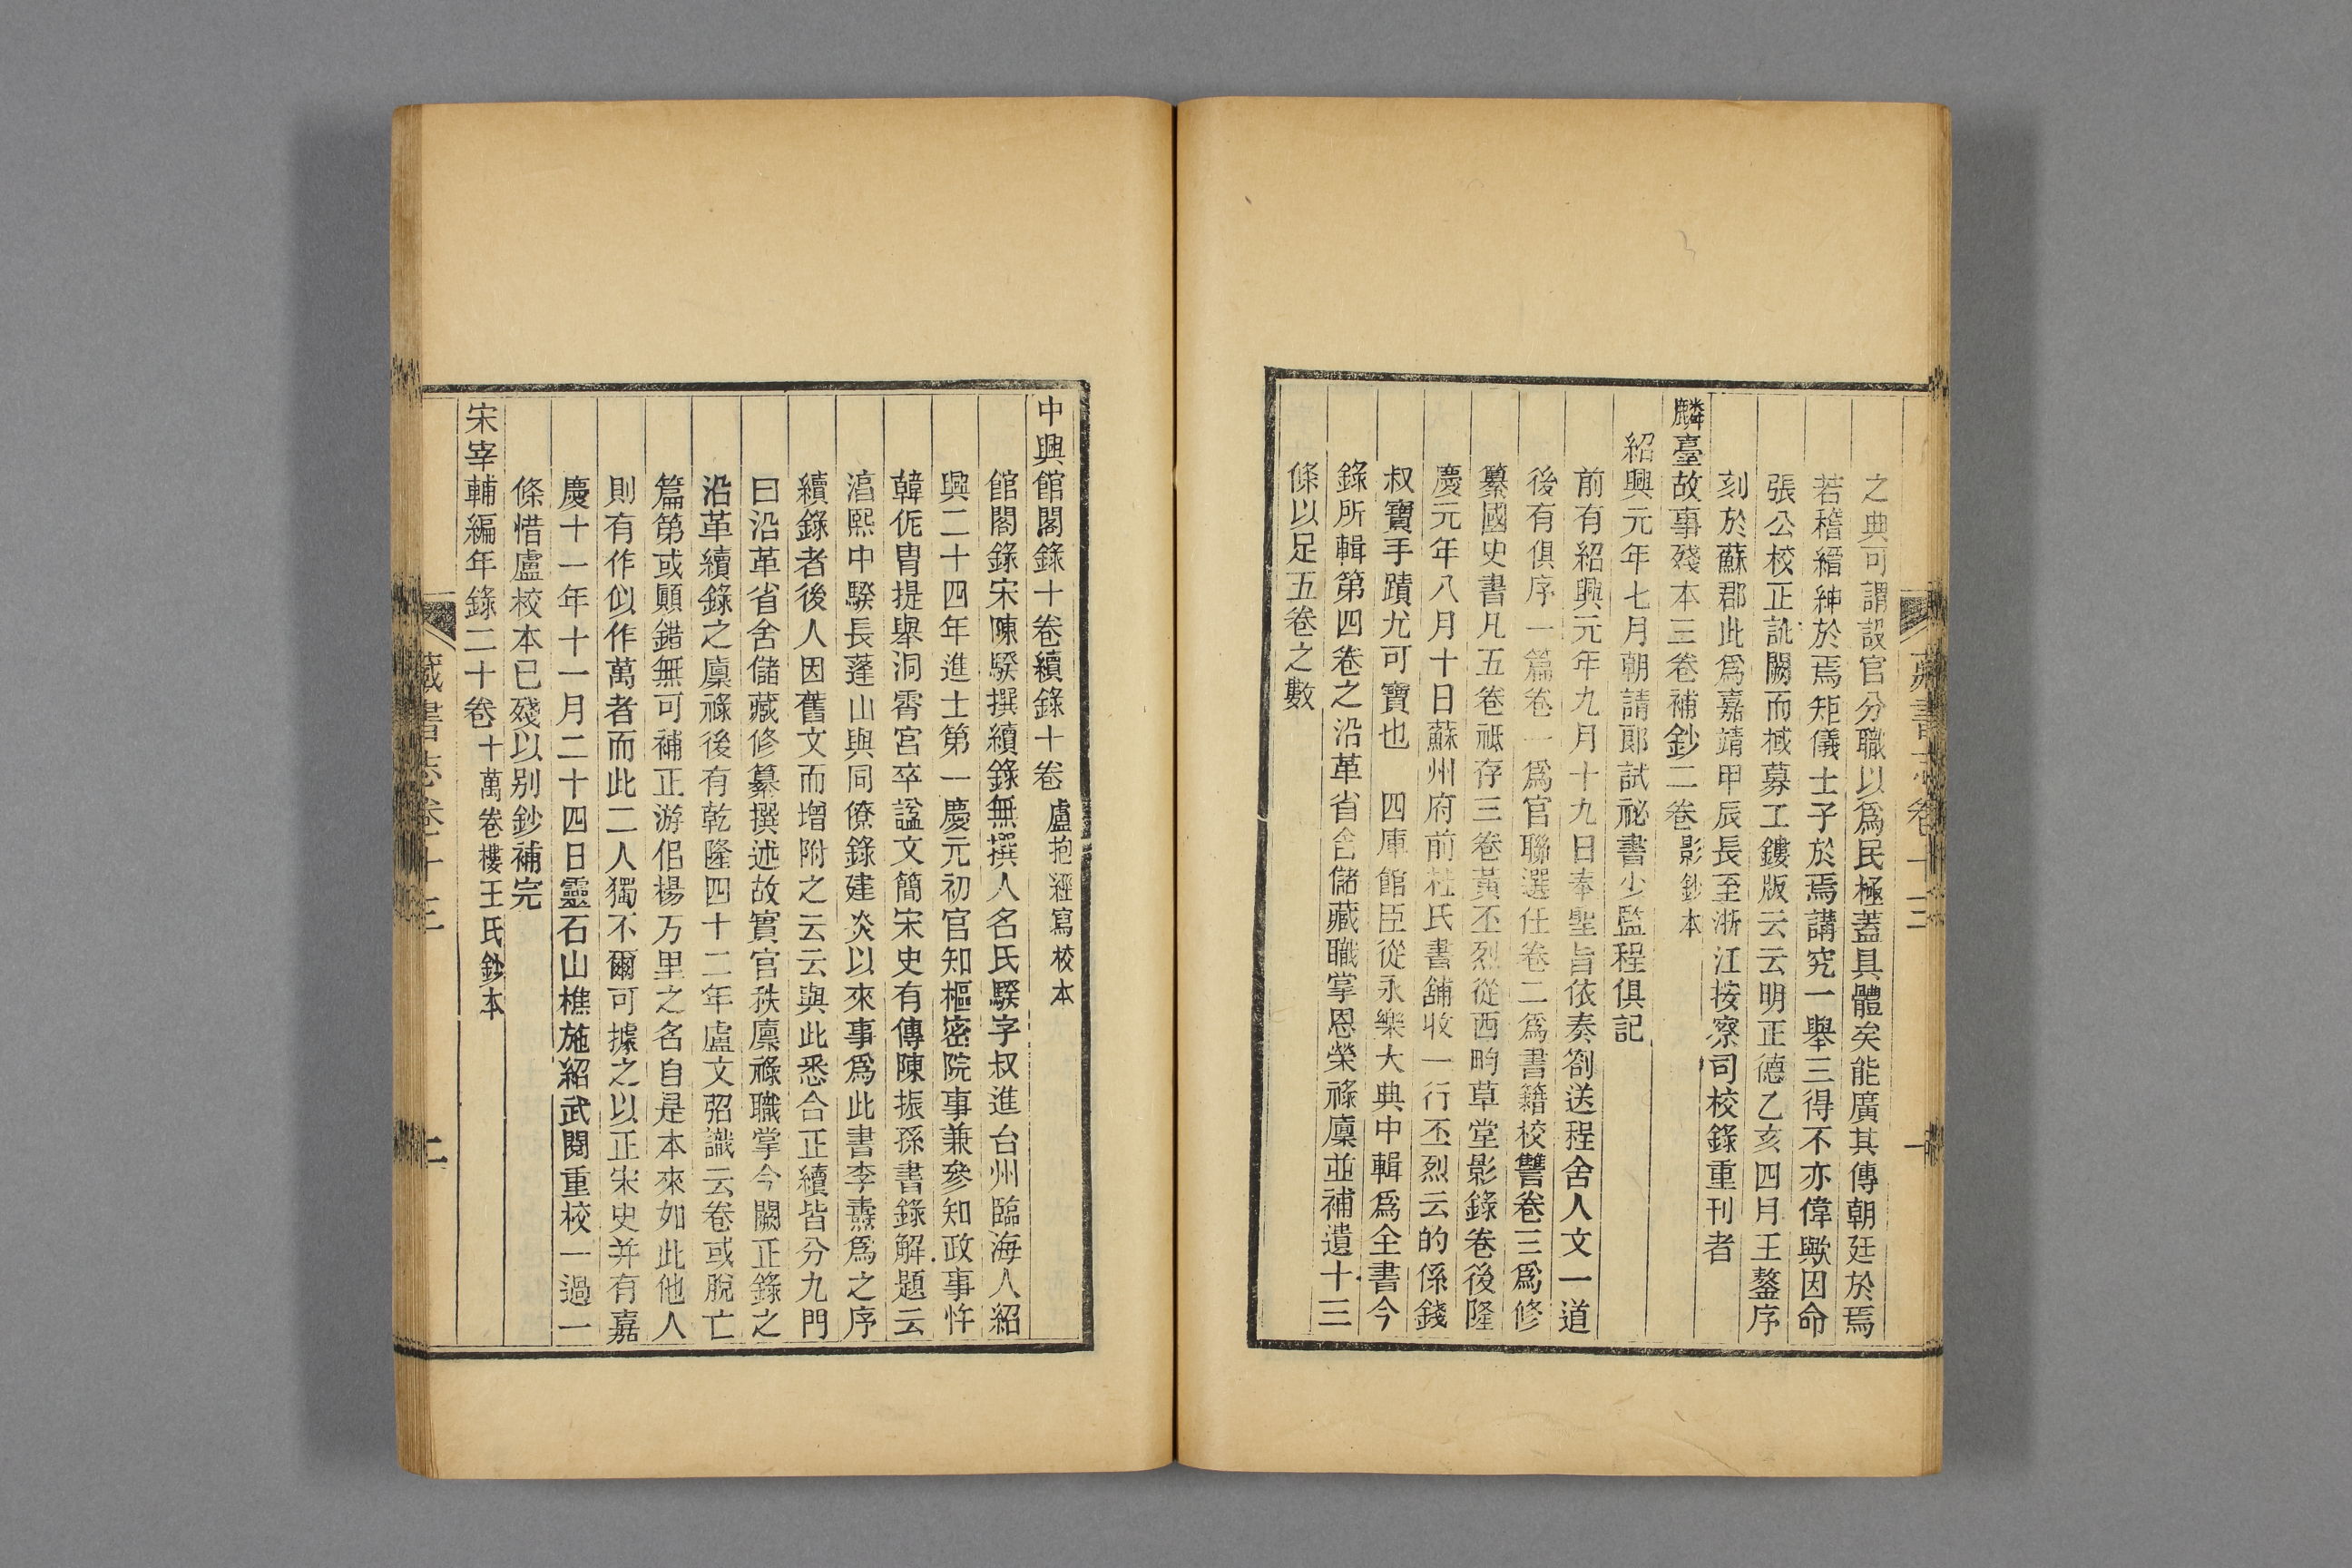 之典可謂設官分職以爲民極蓋具體矣能廣其傳朝廷於焉
若稽縉紳於焉矩儀士子於焉講究一舉三得不亦偉歟因命
張公校正訛闕而棫募工鏤版云云明正德乙亥四月王鏊序
刻於蘇郡此爲嘉靖甲辰長至浙江按察司校錄重刊者
麟臺故事殘本三卷補鈔二卷 影鈔本
紹興元年七月朝請郎試祕書少監程俱記
前有紹興元年九月十九日奉聖旨依奏劄送程舍人文一道
後有俱序一篇卷一爲官聯選任卷二爲書籍校讐卷三爲修
纂國史書凡五卷祗存三卷黃丕烈從西畇草堂影錄卷後隆
慶元年八月十日蘇州府前杜氏書舖收一行丕烈云的係錢
叔寶手蹟尤可寶也 四庫館臣從永樂大典中輯爲全書今
錄所輯第四卷之沿革省舍儲藏職掌恩榮祿廩並補遺十三
條以足五卷之數
中興館閣錄十卷續錄十卷 盧抱經寫校本
館閣錄宋陳騤撰續錄無撰人名氏騤字叔進台州臨海人紹
興二十四年進士第一慶元初官知樞密院事兼參知政事忤
韓侂冑提舉洞霄宮卒諡文簡宋史有傳陳振孫書錄解題云
滔熙中騤長蓬山與同僚錄建炎以來事爲此書李燾爲之序
續錄者後人因舊文而增附之云云與此悉合正續皆分九門
曰沿革省舍儲藏修纂撰述故實官秩廩祿職掌今闕正錄之
沿革續錄之廩祿後有乾隆四十二年盧文弨識云卷或脫亡
篇第或顚錯無可補正游侶楊万里之名自是本來如此他人
則有作似作萬者而此二人獨不爾可據之以正宋史幷有嘉
慶十一年十一月二十四日靈石山樵施紹武閱重校一過一
條惜盧校本已殘以别鈔補完
宋宰輔編年錄二十卷 十萬卷樓王氏鈔本
藏書志卷十三 二